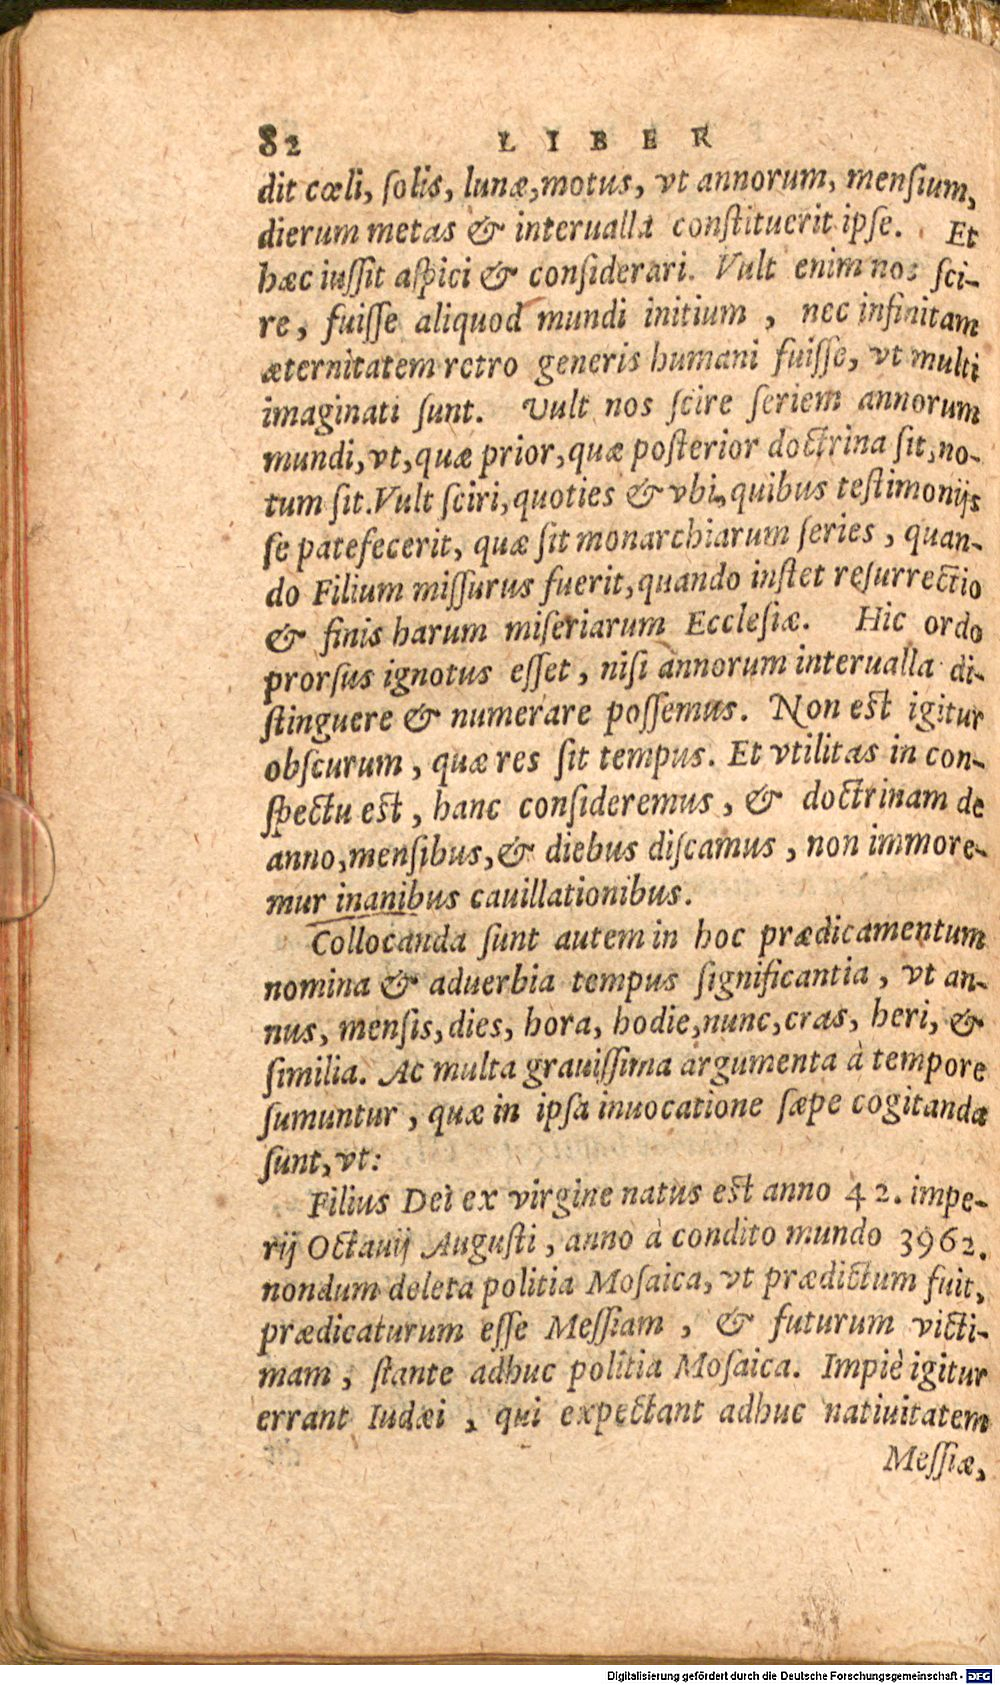 82 LIBER
dit cœli, ſolis, lunæ, motus, vt annorum, menſium,
dierum metas & interualla conſtituerit ipſe. Et
hæc iuſſit aſpici & conſiderari. Vult enim nos ſci-
re, fuiſſe aliquod mundi initium, nec infinitam
æternitatem retro generis humani fuiſſe, vt multi
imaginati ſunt. Vult nos ſcire ſeriem annorum
mundi, vt, quæ prior, quæ poſterior doctrina ſit, no-
tum ſit. Vult ſciri, quoties & vbi, quibus teſtimonijs
ſe patefecerit, quæ ſit monarchiarum ſeries, quan-
do Filium miſſurus fuerit, quando inſtet reſurrectio
& finis harum miſeriarum Eccleſiæ. Hic ordo
prorſus ignotus eſſet, niſi annorum interualla di-
ſtinguere & numerare poſſemus. Non eſt igitur
obſcurum, quæ res ſit tempus. Et vtilitas in con-
ſpectu eſt, hanc conſideremus, & doctrinam de
anno, menſibus, & diebus diſcamus, non immore-
mur inanibus cauillationibus.
Collocanda ſunt autem in hoc prædicamentum
nomina & aduerbia tempus ſignificantia, vt an-
nus, menſis, dies, hora, hodie, nunc, cras, heri, &
ſimilia. Ac multa grauiſſima argumenta à tempore
ſumuntur, quæ in ipſa inuocatione ſæpe cogitanda
ſunt, vt:
Filius Dei ex virgine natus eſt anno 42. impe-
rij Octauij Auguſti, anno à condito mundo 3962.
nondum deleta politia Moſaica, vt prædictum fuit,
prædicaturum eſſe Meſſiam, & futurum victi-
mam, ſtante adhuc politia Moſaica. Impiè igitur
errant Iudæi, qui expectant adhuc natiuitatem
Meſſiæ,
Digitalisierung gefördert durch die Deutsche Forschungsgemeinschaft - DFG